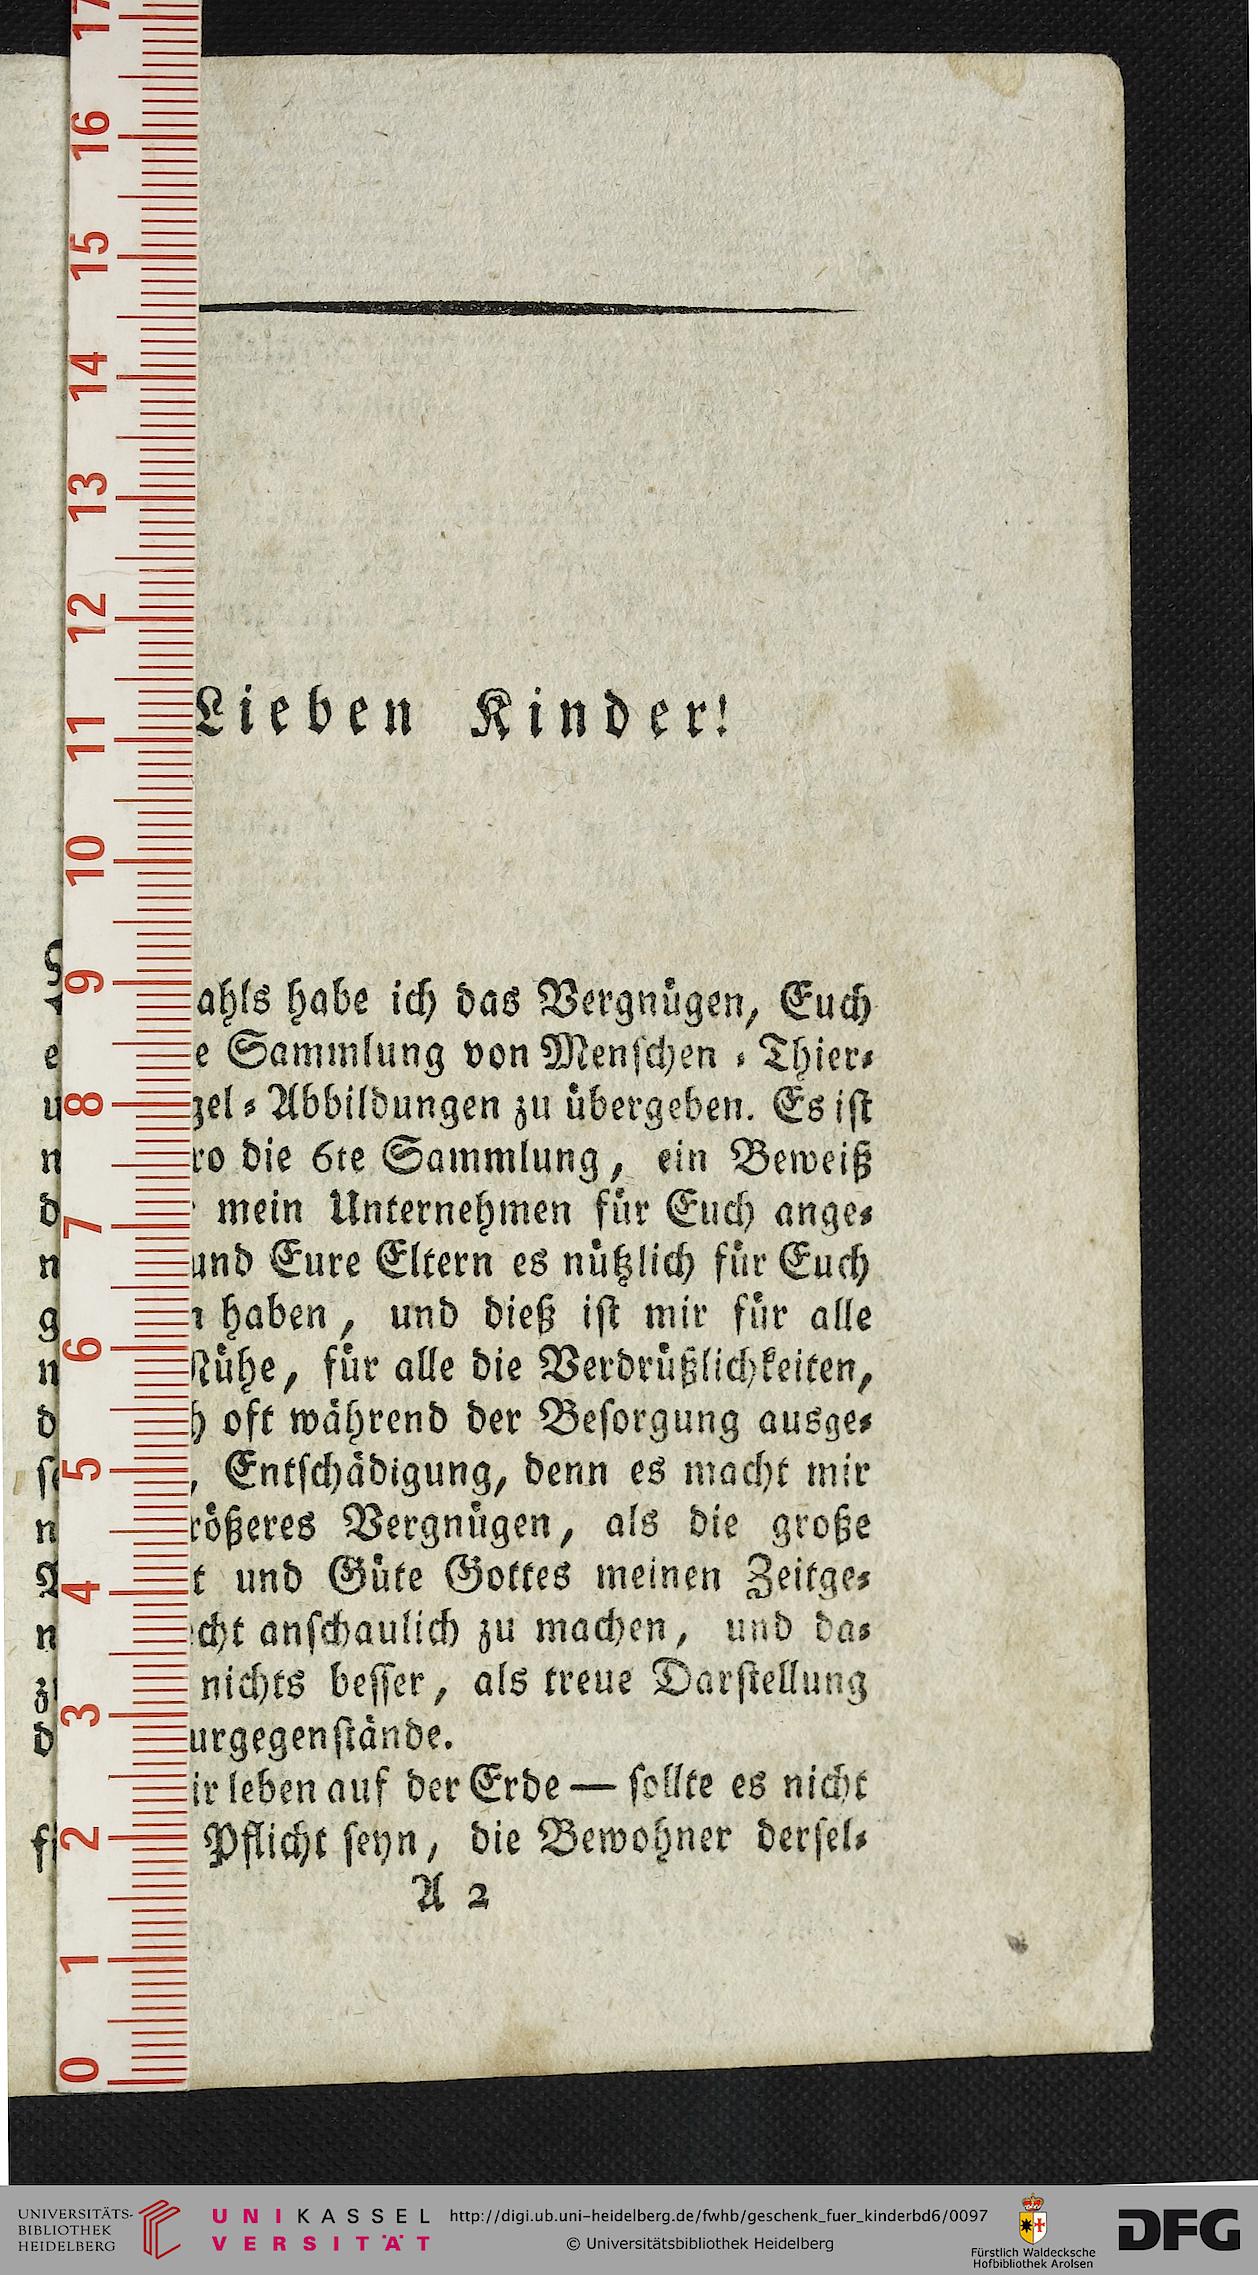 Lieben Kinder!
ahls habe ich das Vergnügen, Euch
e Sammlung von Menschen - Thier-
gel - Abbildungen zu übergeben. Es ist
ro die 6te Sammlung, ein Beweiß
mein Unternehmen für Euch ange-
und Eure Eltern es nützlich für Euch
haben, und dieß ist mir für alle
Mühe, für alle die Verdrüßlichkeiten,
h oft während der Besorgung ausge-
, Entschädigung, denn es macht mir
rößeres Vergnügen, als die große
t und Güte Gottes meinen Zeitge-
cht anschaulich zu machen, und da-
nichts besser, als treue Darstellung
urgegenstände.
ir leben auf der Erde — sollte es nicht
Pflicht seyn, die Bewohner dersel-
A 2
17
16
15
14
13
12
11
10
9
8
7
6
5
4
3
2
1
0
UNIVERSITÄTS-
BIBLIOTHEK
HEIDELBERG
UNIKASSEL
VERSITÄT
http://digi.ub.uni-heidelberg.de/fwhb/geschenk_fuer_kinderbd6/0097
© Universitätsbibliothek Heidelberg
Fürstlich Waldecksche
Hofbibliothek Arolsen
DFG